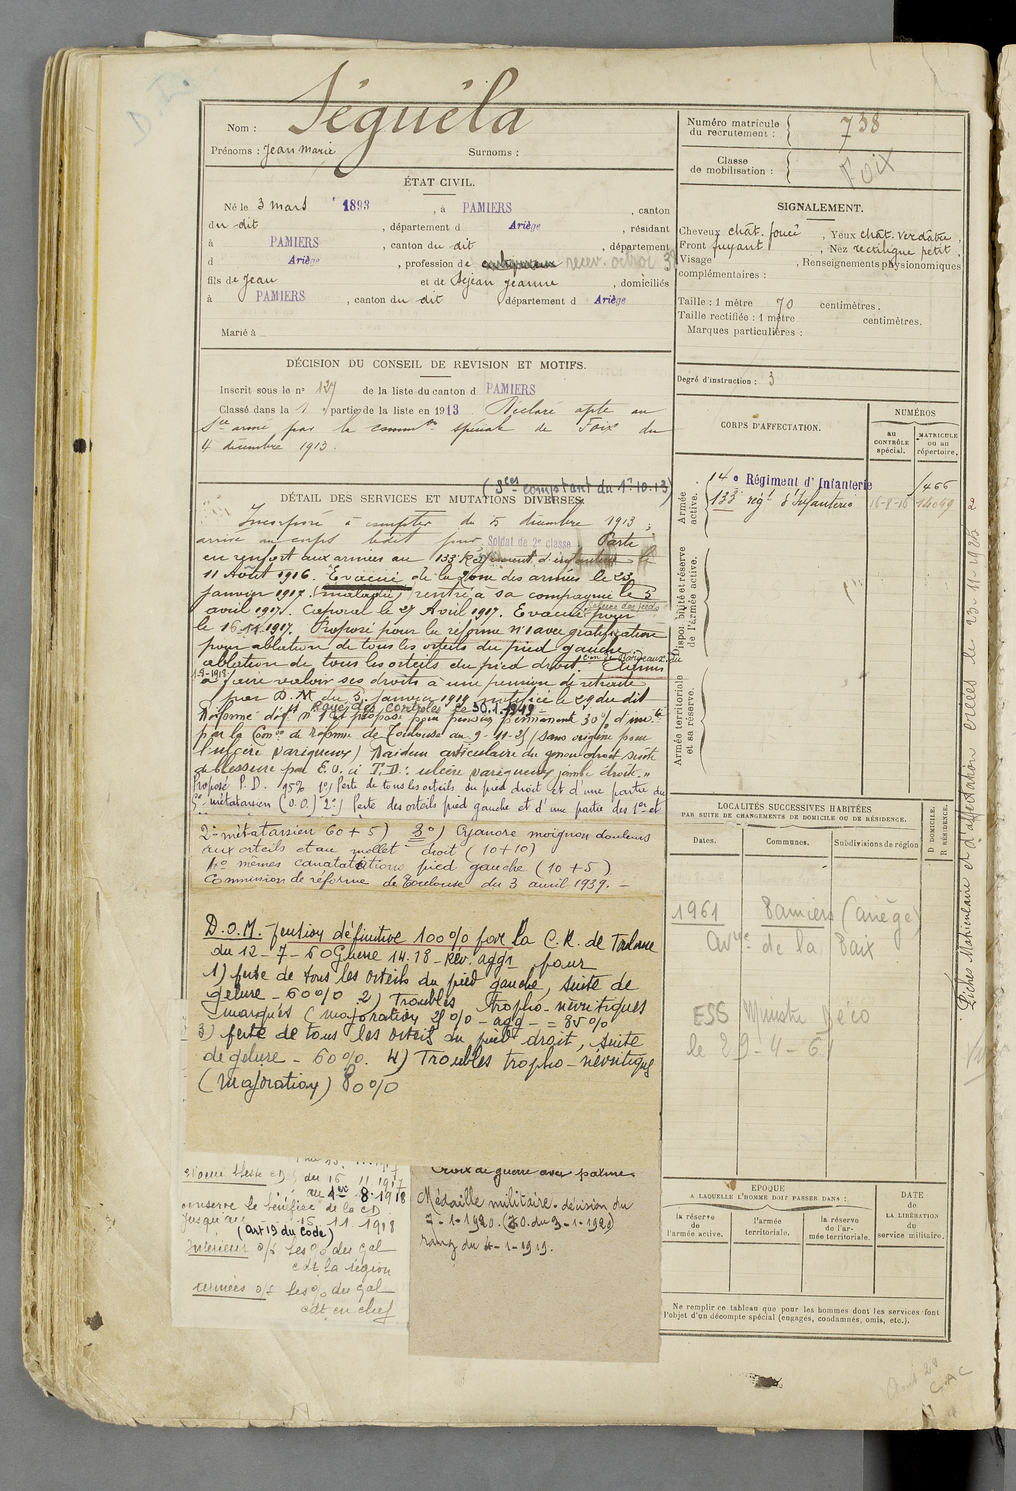 D. I.
Nom : Séguéla
Prénoms : Jean Marie Surnoms :
Numéro matricule du recrutement : 738
Classe de mobilisation : Foix
ÉTAT CIVIL.
Né le 3 mars 1893, à PAMIERS, canton
du dit, département d Ariège, résidant
à PAMIERS, canton du dit, département
d Ariège, profession de recev. octroi
fils de Jean et de Sejean Jeanne, domiciliés
à PAMIERS, canton du dit département d Ariège
Marié à
SIGNALEMENT.
Cheveux chât. foncé, Yeux chât. verdâtre,
Front fuyant, Nez rectiligne petit.
Visage, Renseignements physionomiques
complémentaires :
Taille : 1 mètre 70 centimètres.
Taille rectifiée : 1 mètre centimètres.
Marques particulières :
Degré d'instruction : 3
DÉCISION DU CONSEIL DE REVISION ET MOTIFS.
Inscrit sous le n° 127 de la liste du canton d PAMIERS
Classé dans la 1 partie de la liste en 1913 Déclaré apte au
Sce armé par la common spéciale de Foix du
4 décembre 1913.
CORPS D'AFFECTATION.
NUMÉROS
au CONTRÔLE spécial.
MATRICULE ou au répertoire.
Armée active.
14e Régiment d'Infanterie 1466
133e régt d'Infanterie 16-8-16 14069
Disponibilité et réserve de l'armée active.
Armée territoriale et sa réserve.
(Sces comptant du 1er.10.13)
DÉTAIL DES SERVICES ET MUTATIONS DIVERSES.
Incorporé à compter du 5 décembre 1913,
arrivé au corps ledit jour, Soldat de 2e classe Parti
en renfort aux armées au 133e Régiment d'infanterie le
11 Août 1916. Evacué de la zone des armées le 23
janvier 1917. (maladie) rentré à sa compagnie le 3
avril 1917. Caporal le 27 Avril 1917. Evacué pour gelures des pieds
le 16.11.1917. Proposé pour la réforme n°1 avec gratification
pour ablation de tous les orteils du pied gauche,
ablation de tous les orteils du pied droit. Con de Bordeaux du 1-8-1918 Admis
à faire valoir ses droits à une pension de retraite
par D.M. du 3 janvier 1919 notifiée le 29 du dit
Rayé des contrôles le 30.1.1919
Réformé déft n°1 et proposé pour pension permanent 30% d'invté
par la Comon de réforme de Toulouse du 9-11-25 (sans origine pour
l'ulcère variqueux) Raideur articulaire du genou droit suite
de blessure par E.O. "
Proposé P.D. 95% 1°) Perte de tous les orteils du pied droit et d'une partie du
5e métatarsien (O.O.) 2°) Perte des orteils pied gauche et d'une partie des 1er et
2e métatarsien 60+5) 3°) Cyanose moignon douleurs
aux orteils et au mollet droit (10+10)
4° mêmes constatations pied gauche (10+5)
Commission de réforme de Toulouse du 3 avril 1939. -
D.O.M. Pension définitive 100% par la C.R. de Toulouse
du 12-7-60 Guerre 14.18 - Rév. aggr pour
1) perte de tous les orteils du pied gauche, suite de
gelure - 60% 2) Troubles tropho-névritiques
marqués (majoration 25% - agg - = 85%
3) perte de tous les orteils du pied droit, suite
de gelure - 60%. 4) Troubles tropho-névritiques
(majoration) 80%
LOCALITÉS SUCCESSIVES HABITÉES
PAR SUITE DE CHANGEMENTS DE DOMICILE OU DE RÉSIDENCE.
Dates. Communes. Subdivisions de région
D DOMICILE. R RÉSIDENCE.
1961 Pamiers (Ariège)
Avue de la Paix
ESS Ministre
le 29-4-61
du 16 11 1917
au 1er 8.1918
conserve le bénéfice de la CD
jusqu'au 15 11 1918
(Art 19 du Code)
Intérieur o/s les % du Gal
cdt la région
armées o/s les % du Gal
cdt en chef
Croix de guerre avec palme.
Médaille militaire. décision du
7-1-1920. (J.O. du 3-1-1920)
rang du 4-1-1919.
EPOQUE
A LAQUELLE L'HOMME DOIT PASSER DANS :
la réserve de l'armée active.
l'armée territoriale.
la réserve de l'armée territoriale.
DATE de LA LIBÉRATION du service militaire.
Ne remplir ce tableau que pour les hommes dont les services font
l'objet d'un décompte spécial (engagés, condamnés, omis, etc.).
Fiches Matriculaire et d'affectation créées le 23-11-1925
C.A.C